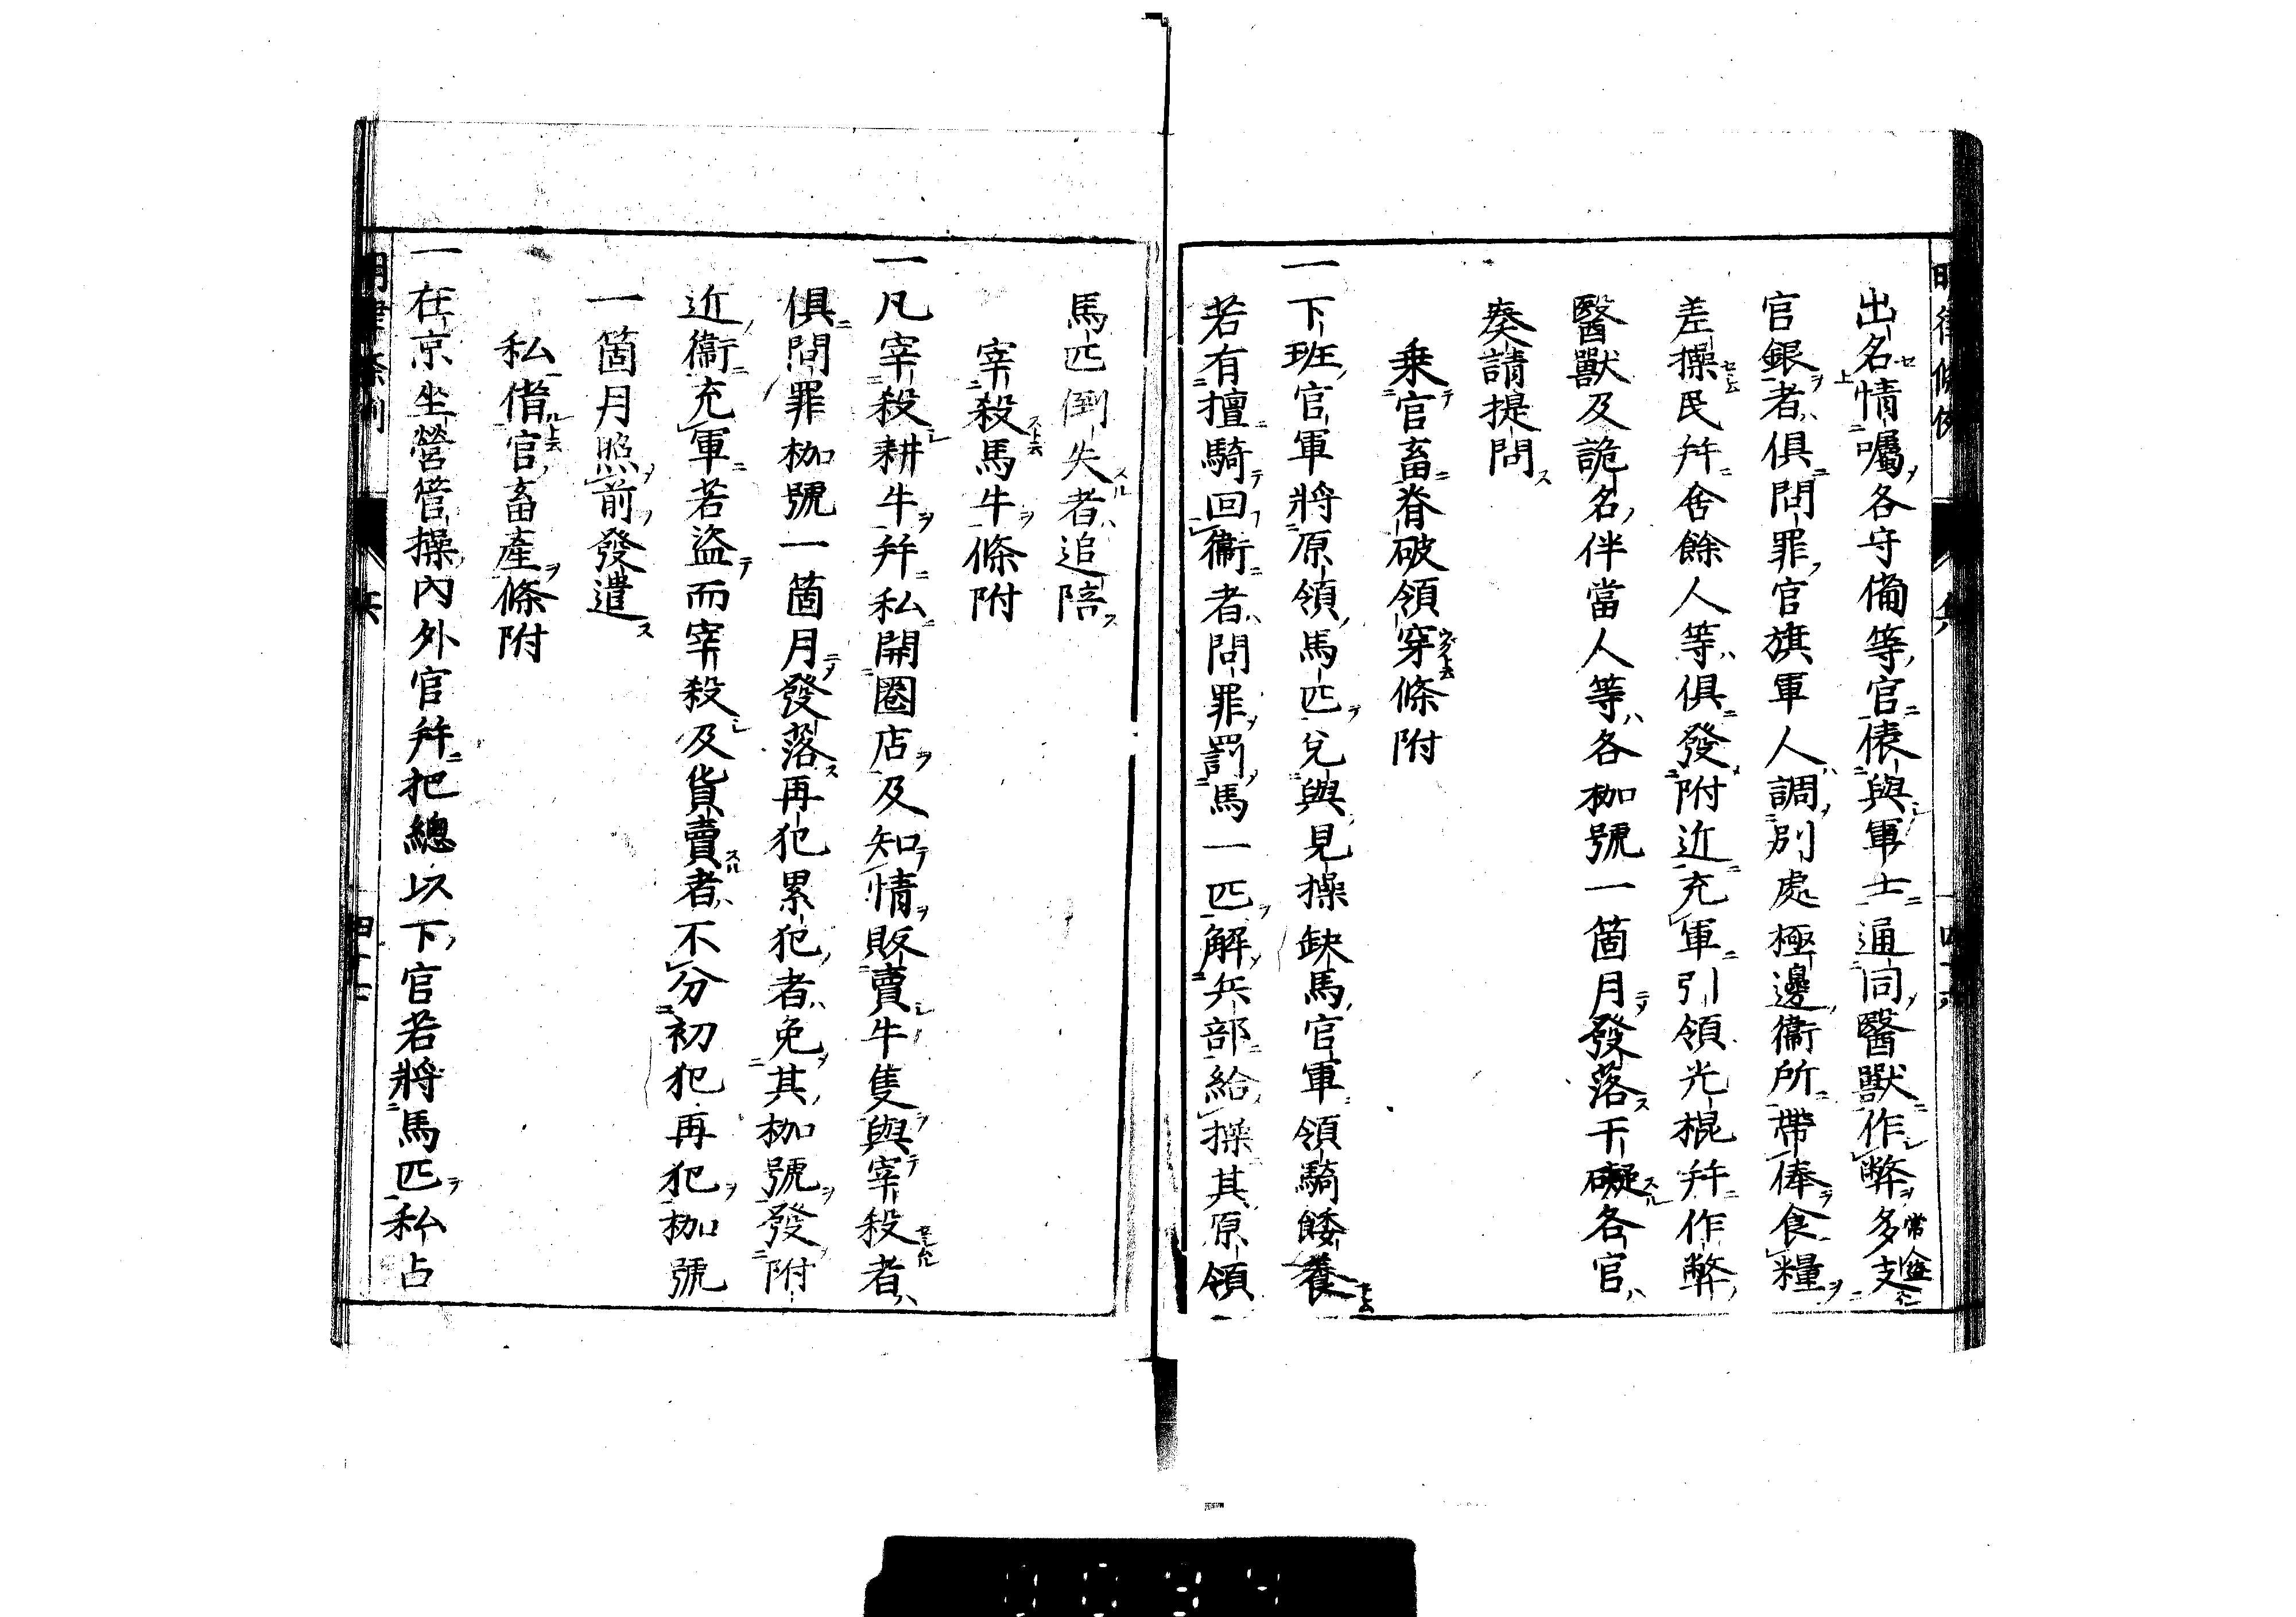 出名情囑各守備等官俵與軍士通同醫獸作弊多支
官銀者俱問罪官旗軍人調別處極邊衞所帶俸食糧
差操民幷舍餘人等俱發附近充軍引領光棍幷作弊
醫獸及詭名伴當人等各枷號一箇月發落干礙各官
奏請提問
乗官畜脊破領穿條附
一下班官軍將原領馬匹兌與見操缺馬官軍領騎餧養
若有擅騎回衞者問罪罰馬一匹解兵部給操其原領
馬匹倒失者追陪
宰殺馬牛條附
一凡宰殺耕牛幷私開圈店及知情販賣牛隻與宰殺者
俱問罪枷號一箇月發落再犯累犯者免其枷號發附
近衞充軍若盜而宰殺及貨賣者不分初犯再犯枷號
一箇月照前發遣
私借官畜產條附
一在京坐營管操內外官幷把總以下官若將馬匹私占
明律條例 兵